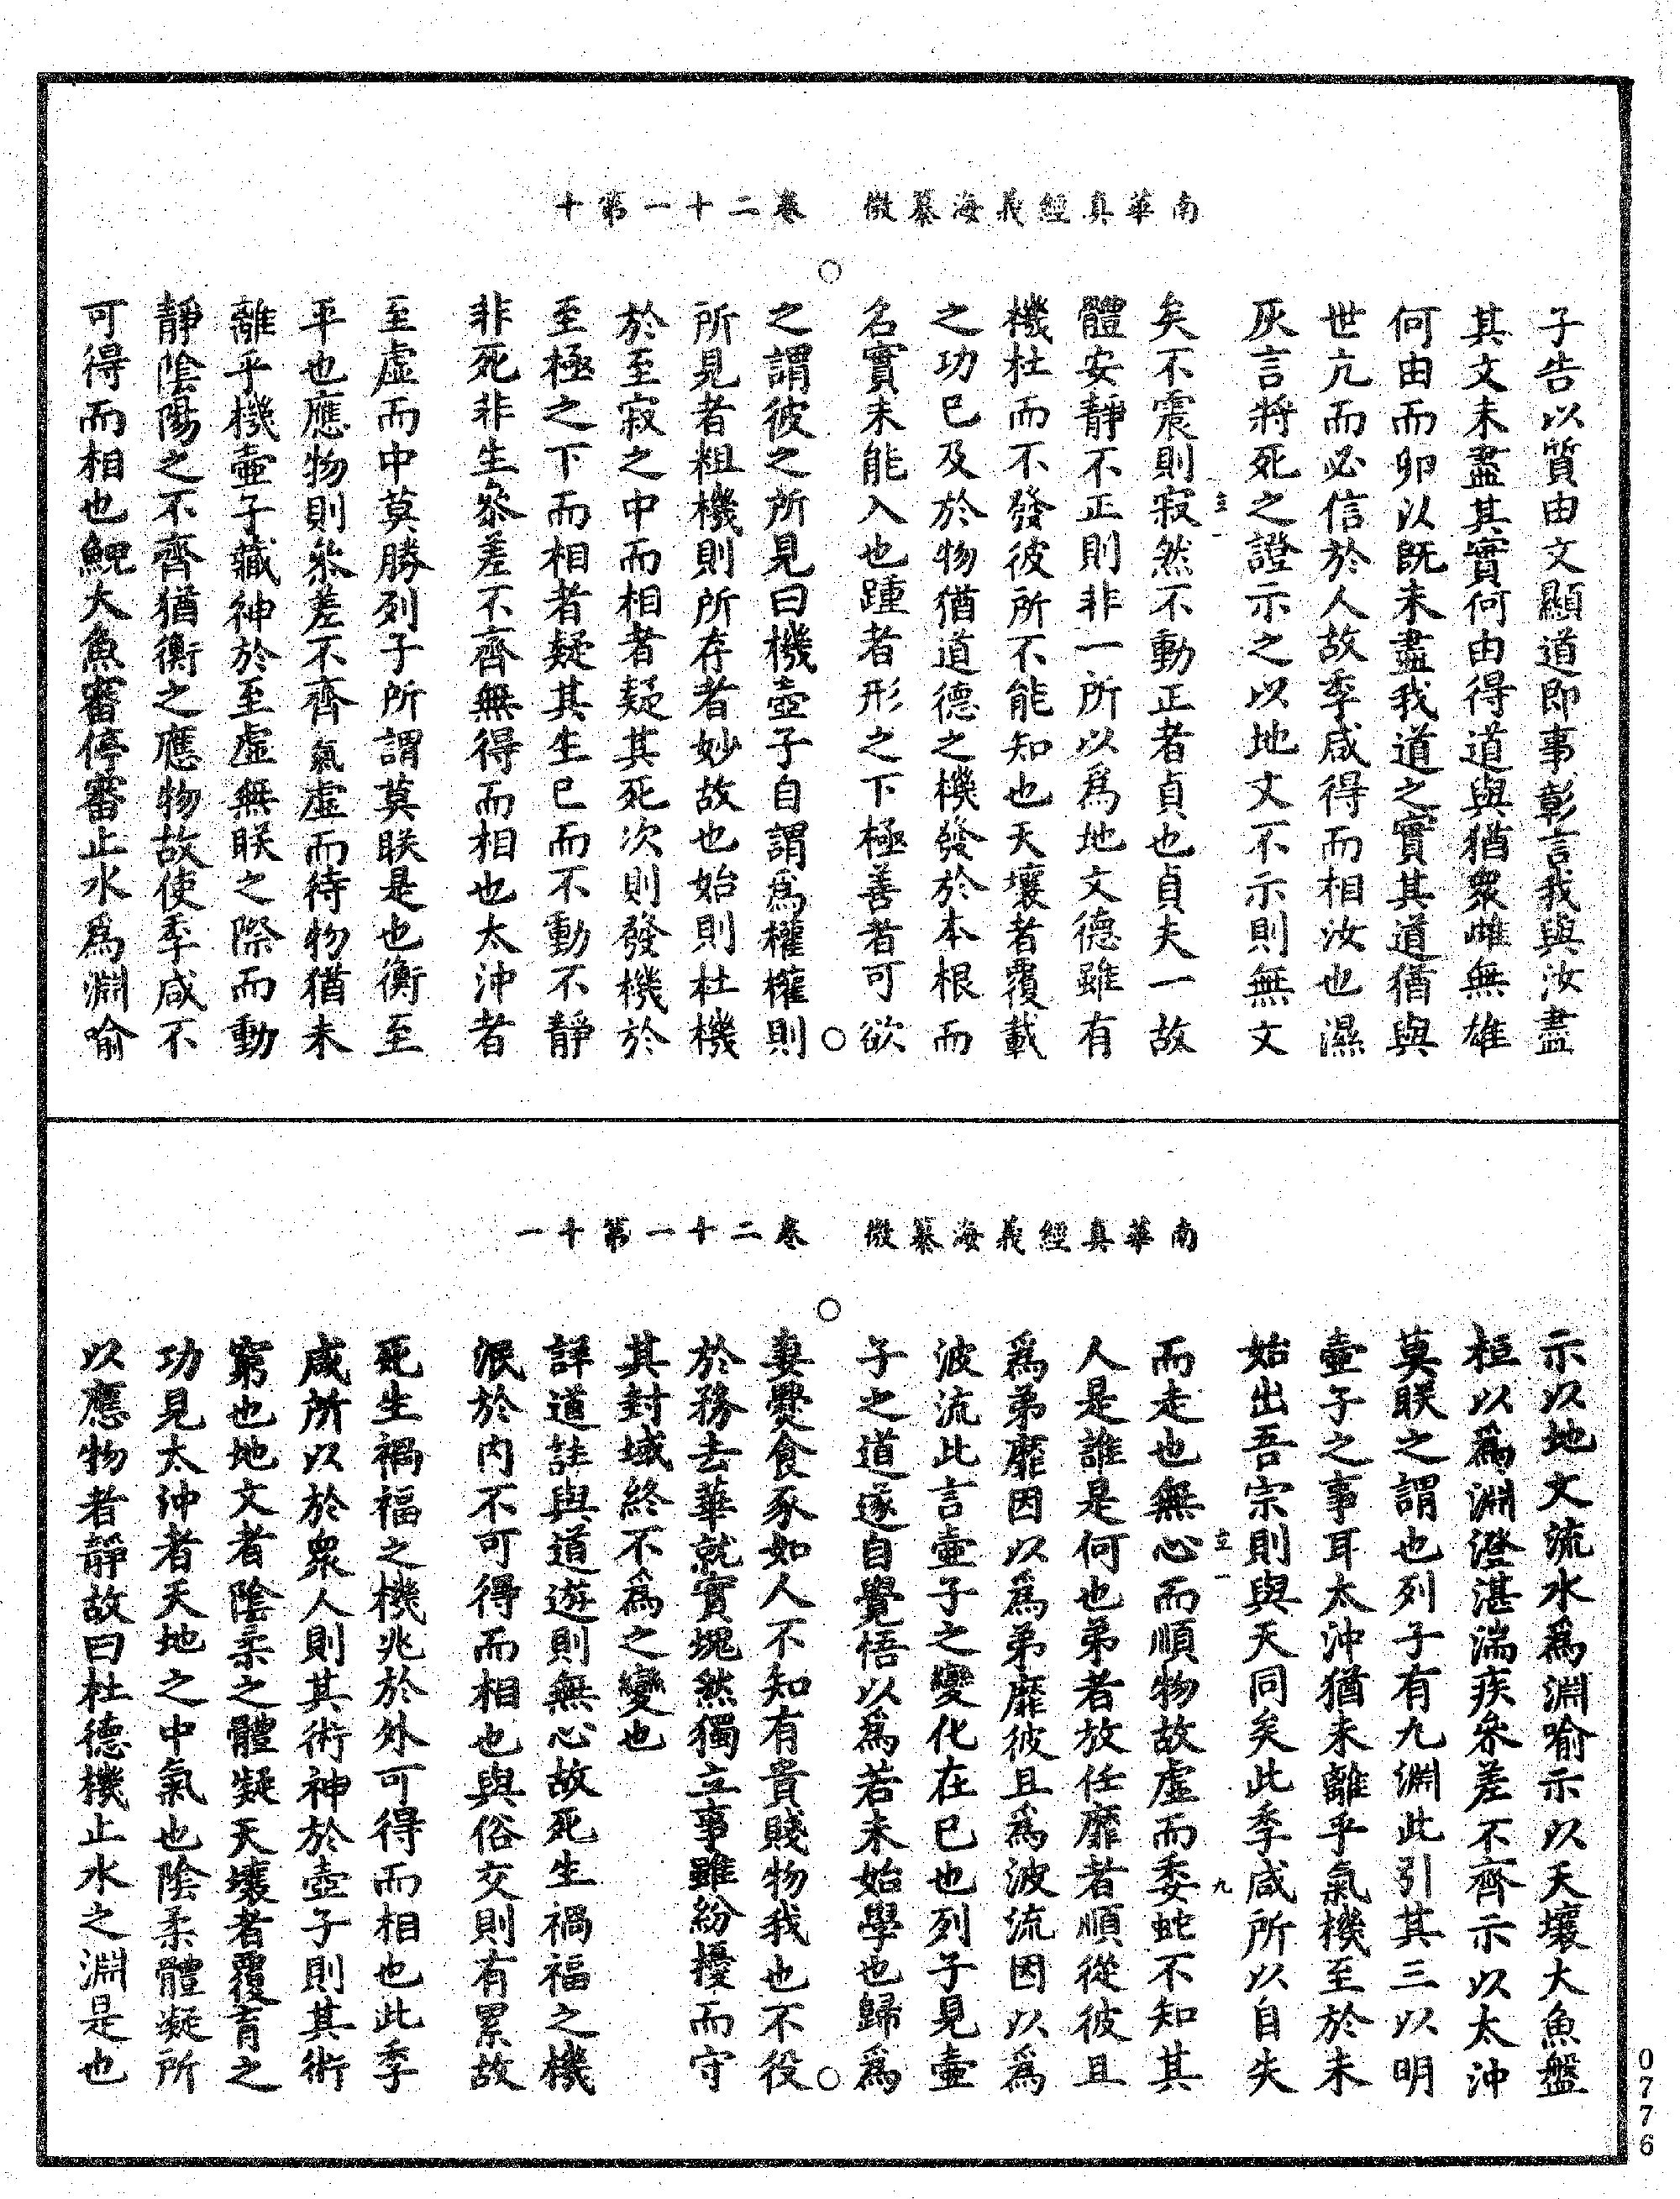 南華真經義海纂微　卷二十一第十
子告以質由文顯道即事彰言我與汝盡
其文未盡其實何由得道與猶衆雌無雄
何由而卵以既未盡我道之實其道猶與
世亢而必信於人故季咸得而相汝也濕
灰言將死之證示之以地文不示則無文
矣不震則寂然不動正者貞也貞夫一故
體安靜不正則非一所以為地文德雖有
機杜而不發彼所不能知也天壤者覆載
之功已及於物猶道德之機發於本根而
名實未能入也踵者形之下極善者可欲
之謂彼之所見曰機壺子自謂為權權則
所見者粗機則所存者妙故也始則杜機
於至寂之中而相者疑其死次則發機於
至極之下而相者疑其生已而不動不靜
非死非生叅差不齊無得而相也太沖者
至虛而中莫勝列子所謂莫眹是也衡至
平也應物則叅差不齊氣虛而待物猶未
離乎機壺子藏神於至虛無眹之際而動
靜陰陽之不齊猶衡之應物故使季咸不
可得而相也鯢大魚審停審止水為淵喻
南華真經義海纂微　卷二十一第十一
示以地文流水為淵喻示以天壤大魚盤
桓以為淵澄湛湍疾叅差不齊示以太沖
莫眹之謂也列子有九淵此引其三以明
壺子之事耳太沖猶未離乎氣機至於未
始出吾宗則與天同矣此季咸所以自失
而走也無心而順物故虛而委蛇不知其
人是誰是何也弟者放任靡者順從彼且
為弟靡因以為弟靡彼且為波流因以為
波流此言壺子之變化在已也列子見壺
子之道遂自覺悟以為若未始學也歸為
妻爨食豕如人不知有貴賤物我也不役
於務去華就實塊然獨立事雖紛擾而守
其封域終不為之變也
詳道註與道遊則無心故死生禍福之機
泯於内不可得而相也與俗交則有累故
死生禍福之機兆於外可得而相也此季
咸所以於衆人則其術神於壺子則其術
窮也地文者陰柔之體凝天壤者覆育之
功見太沖者天地之中氣也陰柔體凝所
以應物者靜故曰杜德機止水之淵是也
十一
十一
九
0776